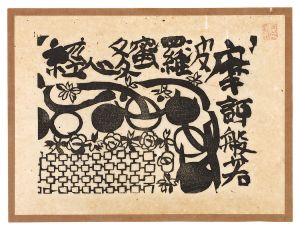 摩訶般若
波羅蜜多心経